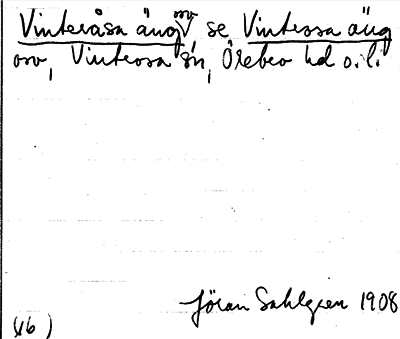 Vinteråsa äng osv se Vinterosa äng
osv, Vinterosa sn, Örebro hd o. l.
Jöran Sahlgren 1908
(16)